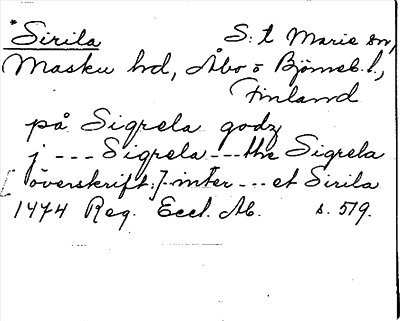 *Sirila S:t Marie sn,
Masku hd, Åbo o Björneb. l.,
Finland
på Sigrela godz
j --- Sigrela --- the Sigrela
[överskrift:] inter --- et Sirila
1474 Reg. Eccl. Ab. s. 519.